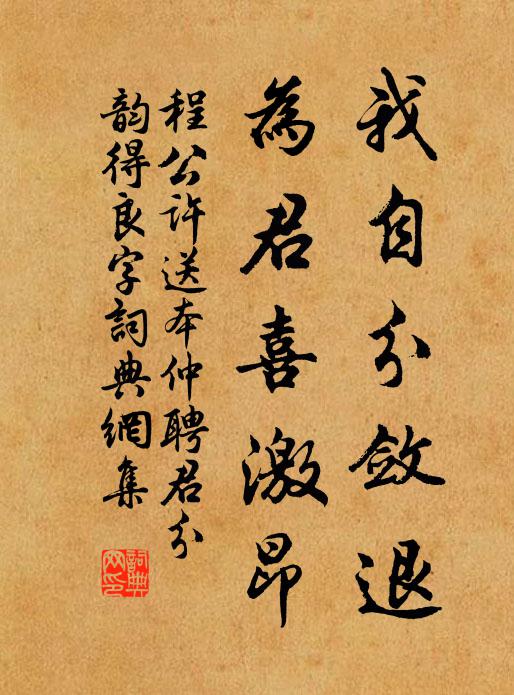 我自分斂退
為君喜激昂
程公許送本仲聘君分
韵得良字詞典網集
詞典
网印